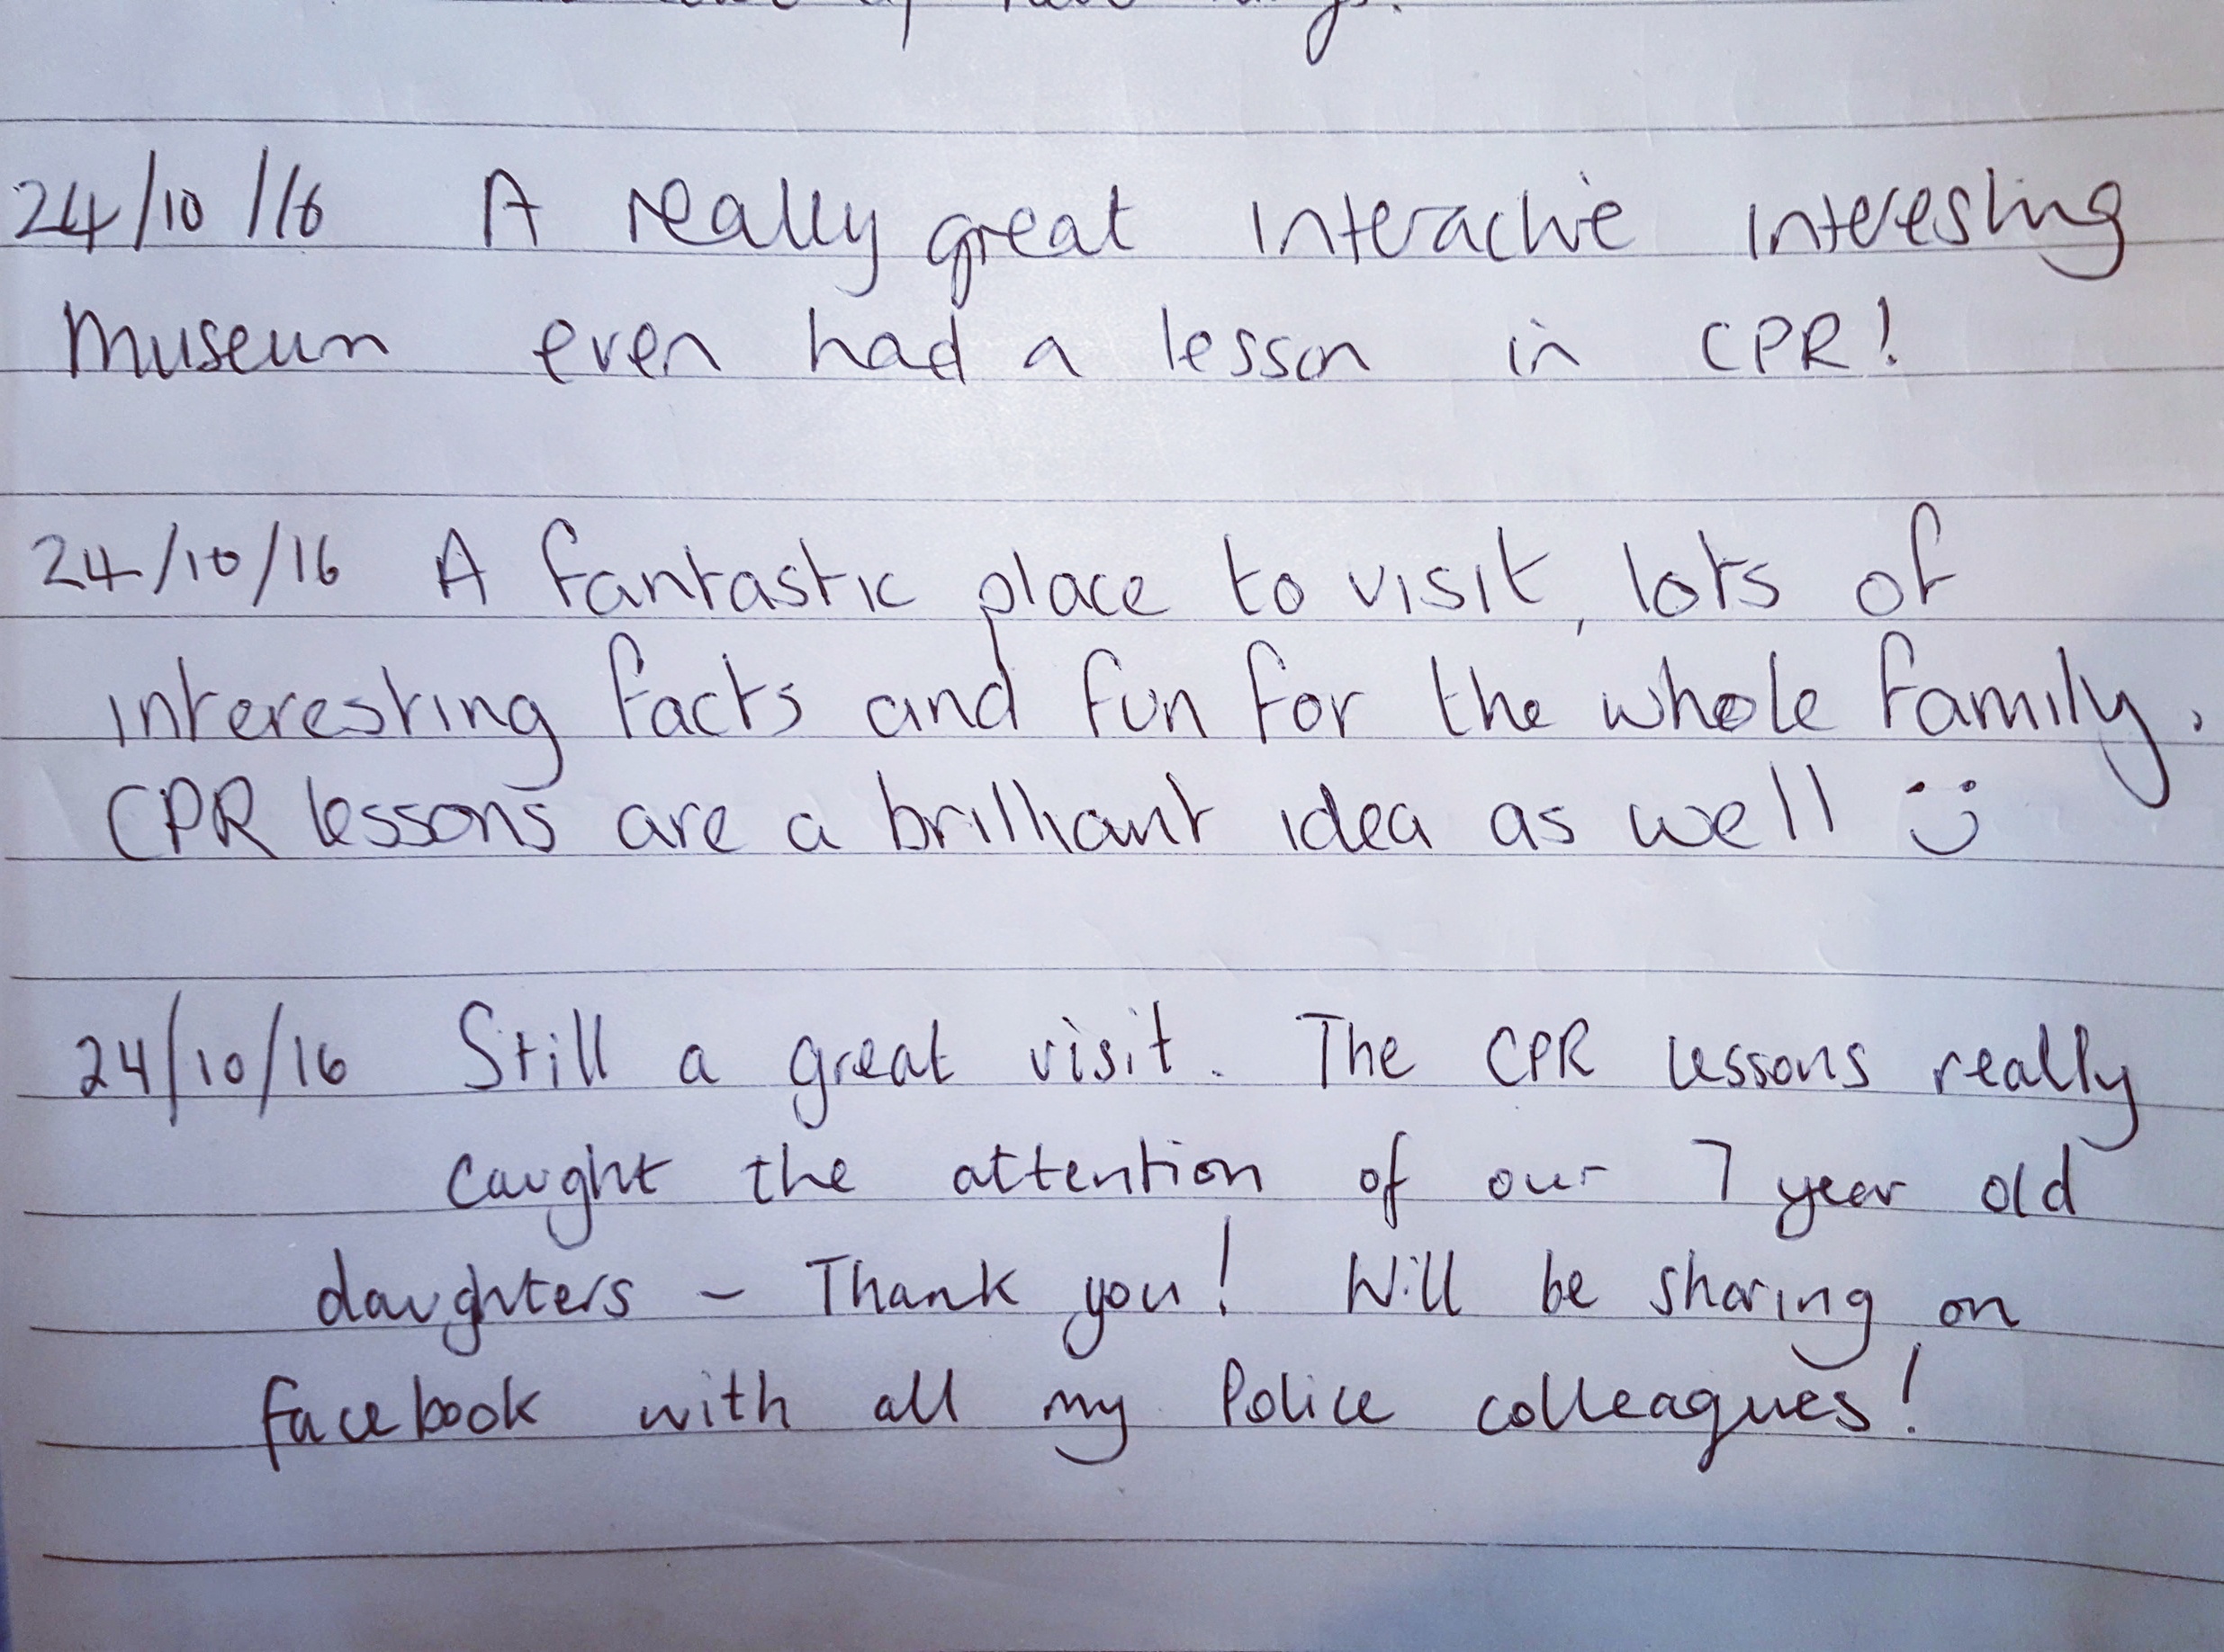 24/10/16 A really great interactive interesting
museum even had a lesson in CPR!
24/10/16 A fantastic place to visit, lots of
interesting facts and fun for the whole family.
CPR lessons are a brilliant idea as well :)
24/10/16 Still a great visit. The CPR lessons really
caught the attention of our 7 year old
daughters - Thank you! Will be sharing on
facebook with all my Police colleagues!